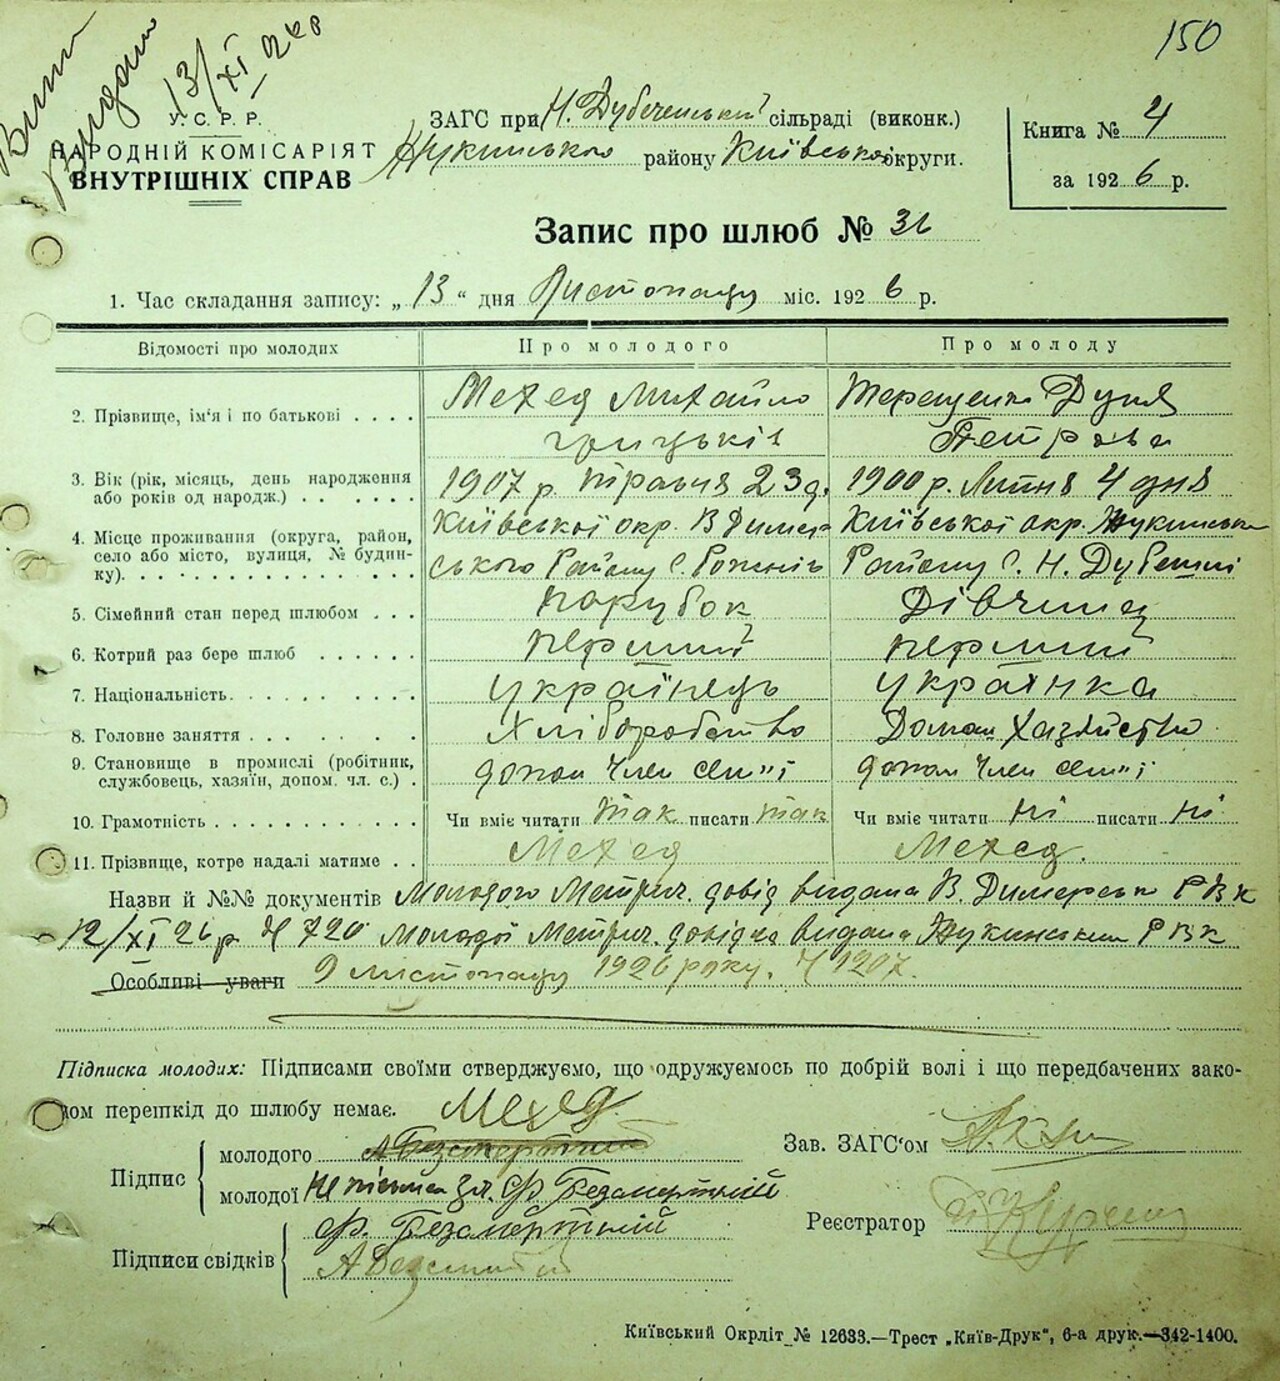 150
Видан
13/XI 26 р
У. С. Р. Р.
НАРОДНІЙ КОМІСАРІЯТ
ВНУТРІШНІХ СПРАВ
ЗАГС при Н. Дубеченській сільраді (виконк.)
Жукинського району Київської округи.
Книга № 4
за 1926 р.
Запис про шлюб № 31
1. Час складання запису: „13“ дня Листопаду міс. 1926 р.
Відомості про молодих Про молодого Про молоду
2. Прізвище, ім‘я і по батькові . . . . Мехед Михайло Терещенко Дуня
Грицьків Петрова
3. Вік (рік, місяць, день народження 1907 р. травня 23 д. 1900 р. Липня 4 дня
або років од народж.) . . . . . .
4. Місце проживання (округа, район, Київської окр. В Димер- Київської окр. Жукинсько
село або місто, вулиця, № будин-
ку). . . . . . . . . . . . . . . ського Району С. Рожнів Району С. Н. Дубечні
5. Сімейний стан перед шлюбом . . . Парубок Дівчина
6. Котрий раз бере шлюб . . . . . . перший перший
7. Національність. . . . . . . . . українець українка
8. Головне заняття . . . . . . . Хліборобство Домаш Хазяйство
9. Становище в промислі (робітник,
службовець, хазяїн, допом. чл. с.) . допом Член сем"ї допом Член сем"ї
10. Грамотність . . . . . . . . . . . . Чи вміє читати так писати так Чи вміє читати ні писати ні
11. Прізвище, котре надалі матиме . . Мехед Мехед.
Назви й №№ документів Молодого Метрич. довід видана В. Димерськ РВК
12/XI 26 р № 720 Молодої Метрич. довідка видана Жукинським РВК
Особливі уваги 9 листопаду 1926 року. Ч 1207.
Підписка молодих: Підписами своїми стверджуємо, що одружуємось по добрій волі і що передбачених зако-
ном перешкід до шлюбу немає. Мехед
Підпис
молодого А Безсмертний
молодої не письмена за. Ф Безсмертний
Зав. ЗАГС‘ом
Реєстратор
Підписи свідків
Ф. Безсмертний
А Безсмертний
Київський Окрліт № 12633.—Трест „Київ-Друк“, 6-а друк.—342-1400.